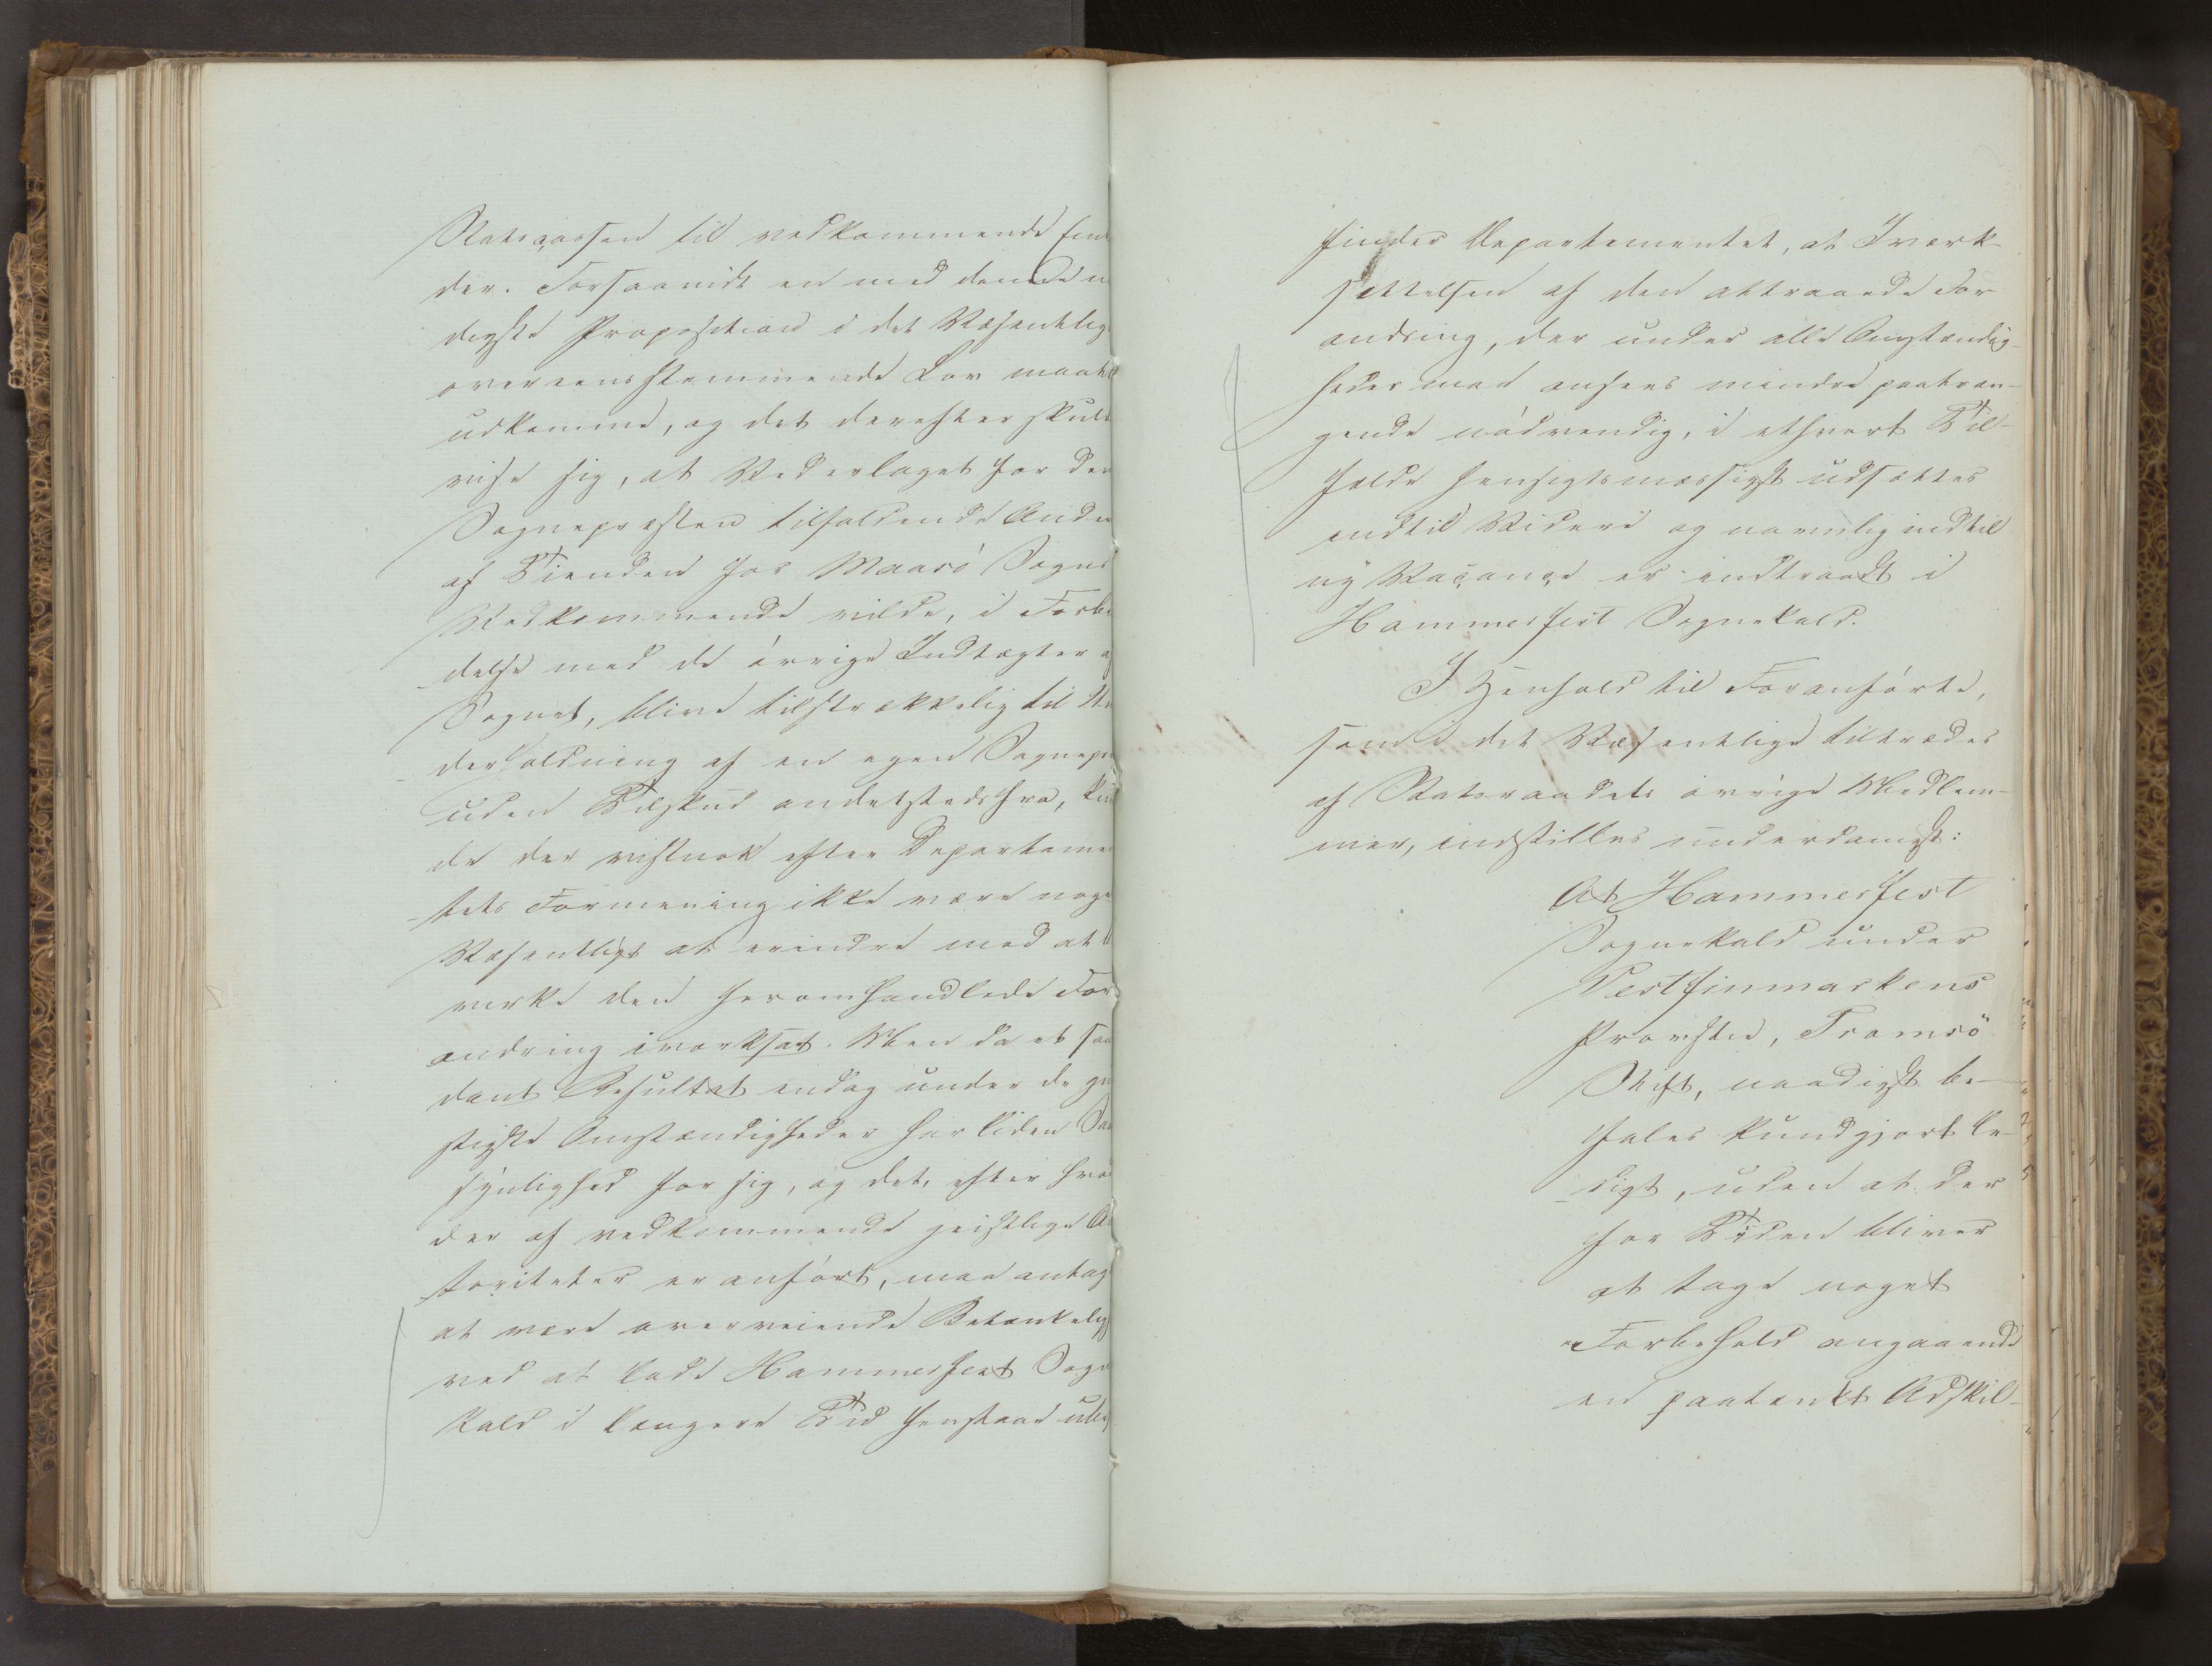 Statscassen til vedkommende Em
der. Forsaavidt en med denne n
digste Proposition i det Væsentlig
overeensstemmende Lov maatte
udkomme, og det derefter skuld
vise sig, at Vederlaget for den
Sognepræsten tilfaldende Andee
af Tienden for Maasö Sogns
Vedkommende vilde, i Forbi
delse med de övrige Indtægter a
Sognet, blive tilstrækkelig til Un
derholdning af en egen Sognepr
uden Tilskud andetstedsfra, kun
de der vistnok efter Departemen
tets Formening ikke være noge
Væsentligt at erindre mod at b
virke den heromhandlede For
andring iværksat. Men da et saa
dant Resultat endog under de gu
stigste Omstændigheder har liden San
synlighed for sig, og det, efter hvad
der af vedkommende geistlige Au
toriteter er anfört, maa antag
at være overveiende Betænkelig
ved at lade Hammerfest Sogn
kald i længere Tid henstaae ube
finder Departementet, at Iværk-
sættelsen af den attraaede For
andring, der under alle Omstændig-
heder maa ansees mindre paatræn-
gende nödvendig, i ethvert Til-
fælde hensigtsmæssigst udsættes
indtil Videre og navnlig indtil
ny Vacance er indtraadt i
Hammerfest Sognekald.
I Henhold til Foranförte,
som i det Væsentlige tiltrædes
af Statsraadets övrige Medlem-
mer, indstilles underdanigst:
At Hammerfest
Sognekald under
Vestfinmarkens
Provstie, Tromsö
Stift, naadigst be-
fales kundgjort le-
digt, uden at der
for Tiden bliver
at tage noget
Forbehold angaaende
en paatænkt Adskil-